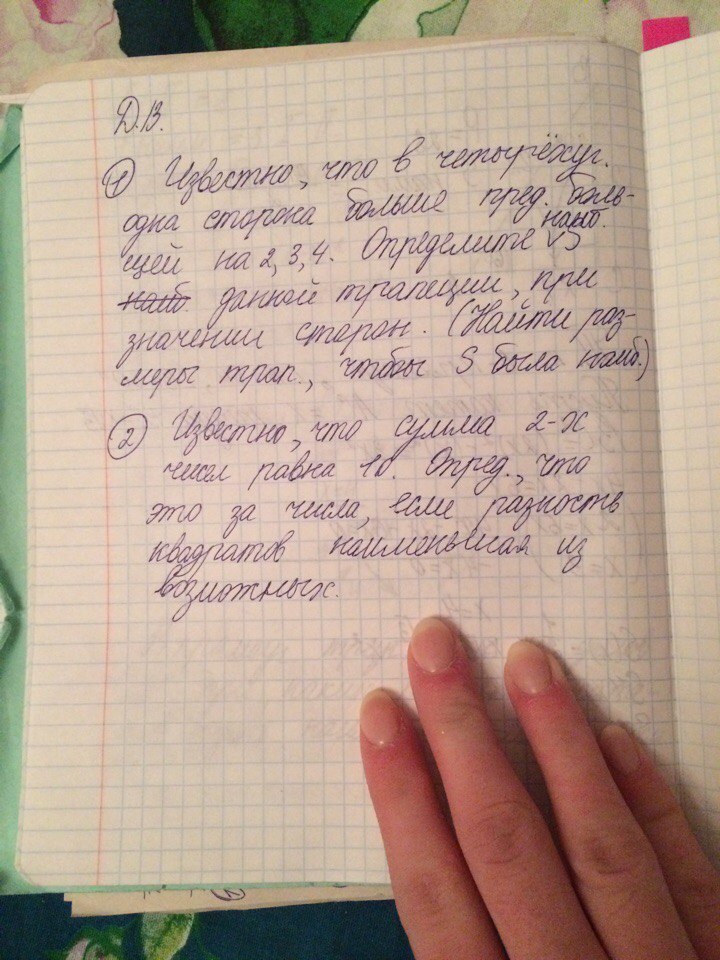 Д.В.
① Известно, что в четырёхуг.
одна сторона больше пред. боль-
щей на 2, 3, 4. Определите наиб. S
наиб. данной трапеции, при
значении сторон. (Найти раз-
меры трап., чтобы S была наиб.)
② Известно, что сумма 2-х
чисел равна 10. Опред., что
это за числа, если разность
квадратов наименьшая из
возможных.